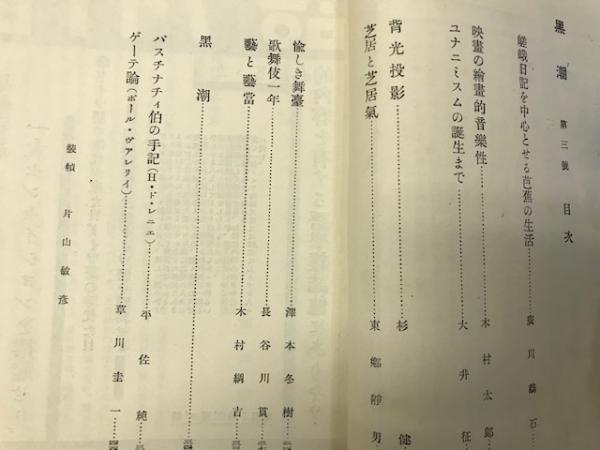 黒潮 第三號 目次
嵯峨日記を中心とせる芭蕉の生活……廣川
映畫の繪畫的音樂性……木村太郎
ユナニミスムの誕生まで……大井征
背光投影……杉 健
芝居と芝居氣……東郷靜男
愉しき舞臺……澤本冬樹
歌舞伎一年……長谷川貫
藝と藝當……木村綱吉
黒潮……
パスチナチィ伯の手記(H・ド・レニエ)……平佐純
ゲーテ論(ポール・ヴアレリイ)……草川圭一
裝幀 片山敏彦